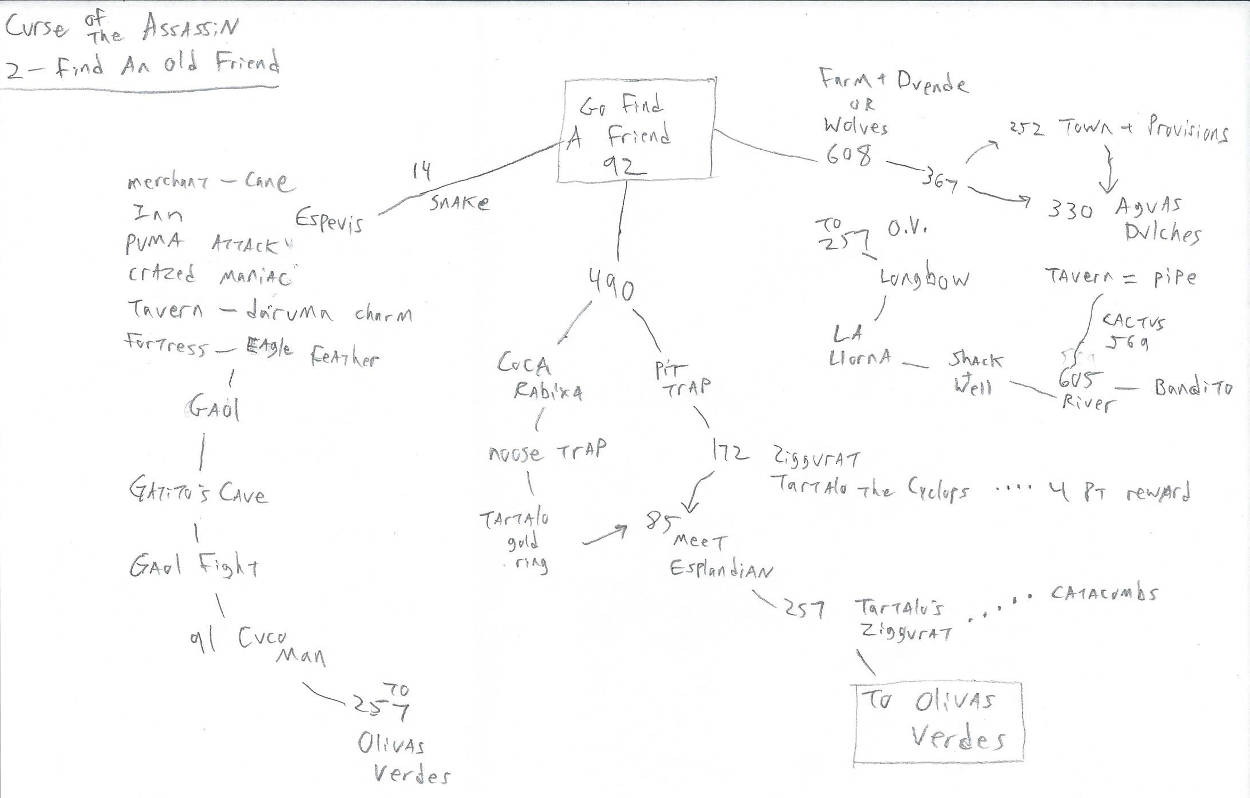 Curse of The Assassin
2 - Find An Old Friend
Go Find
A Friend
92
14
Snake
Espevis
merchant - Cane
Inn
Puma Attack
crazed maniac
Tavern - daruma charm
Fortress - Eagle Feather
Gaol
Gatito's Cave
Gaol Fight
91 Cuco
Man
To
257
Olivas
Verdes
490
Coca
Rabixa
noose Trap
Tartalo
gold
ring
Pit
Trap
172 Ziggurat
Tartalo The Cyclops .... 4 pt reward
85
Meet
Esplandian
257 Tartalo's
Ziggurat
...... Catacombs
To Olivas
Verdes
Farm + Duende
OR
Wolves
608
367
252 Town + Provisions
330 Aguas
Dulches
To
257 O.V.
Longbow
La
Llorna
Shack
+
Well
Tavern = pipe
Cactus
569
605
River
Bandito